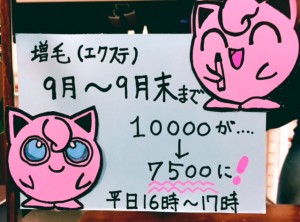 増毛(エクステ)
9月〜9月末まで
10000が....
↓
7500に!
平日16時〜17時